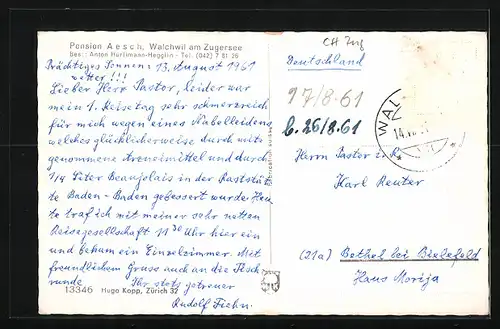 Pension Aesch, Walchwil am Zugersee
Bes.: Anton Hürlimann-Hegglin - Tel. (042) 7 81 26
Prächtiges Sonnen: 13. August 1961
wetter!!!
Lieber Herr Pastor, leider war
mein 1. Reisetag sehr schmerzreich
für mich wegen eines Nabelleidens,
welches glücklicherweise durch mit-
genommene Arzneimittel und durch
1/4 Liter Beaujolais in der Raststät-
te Baden-Baden gebessert wurde. Heu-
te traf ich mit meiner sehr netten
Reisegesellschaft 11 30 Uhr hier ein
und bekam ein Einzelzimmer. Mit
freundlichem Gruss auch an die Tisch-
runde Ihr stets getreuer
Rudolf
13346 Hugo Kopp, Zürich 32
CH Zug
Deutschland
17/8-61
b. 26/8.61
WAL
14.
Herrn Pastor i. R.
Karl Reuter
(21a) Bethel bei Bielefeld
Haus Morija